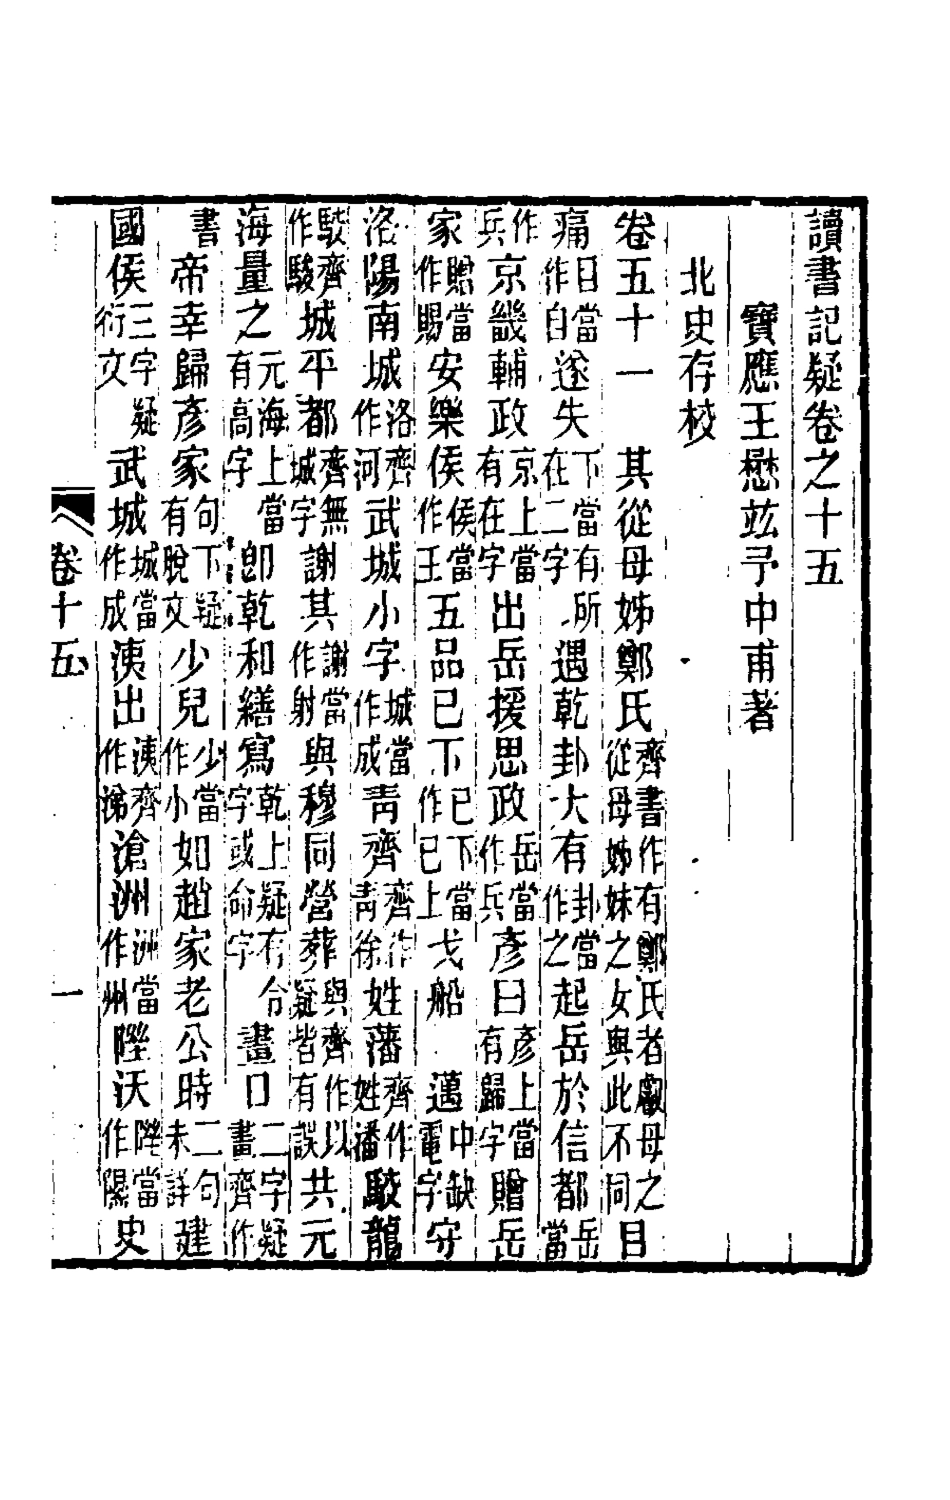 讀書記疑卷之十五
寶應王懋竑予中甫著
北史存校
卷五十一　其從母姊鄭氏齊書作有鄭氏者叡母之從母姊妹之女與此不同目
痛目當作自遂失下當有所在二字遇乾卦大有卦當作之起岳於信都岳當
作兵京畿輔政京上當有在字出岳援思政岳當作兵彥曰彥上當有歸字贈岳
家贈當作賜安樂侯侯當作王五品已下已下當作已上戈船　邁中缺電字守
洛陽南城洛齊作河武城小字城當作成青齊齊作青徐姓藩齊作姓潘駮龍
駮齊作駿城平都齊無城字謝其謝當作射與穆同營葬與齊作以疑皆有誤共元
海量之元海上當有高字卽乾和繕寫乾上疑有令字或命字畫日二字疑畫齊作
書帝幸歸彥家句下疑有脫文少兒少當作小如趙家老公時二句未詳建
國侯三字疑衍文武城城當作成洟出洟齊作涕滄洲洲當作州陞沃陞當作隰史
卷十五
一